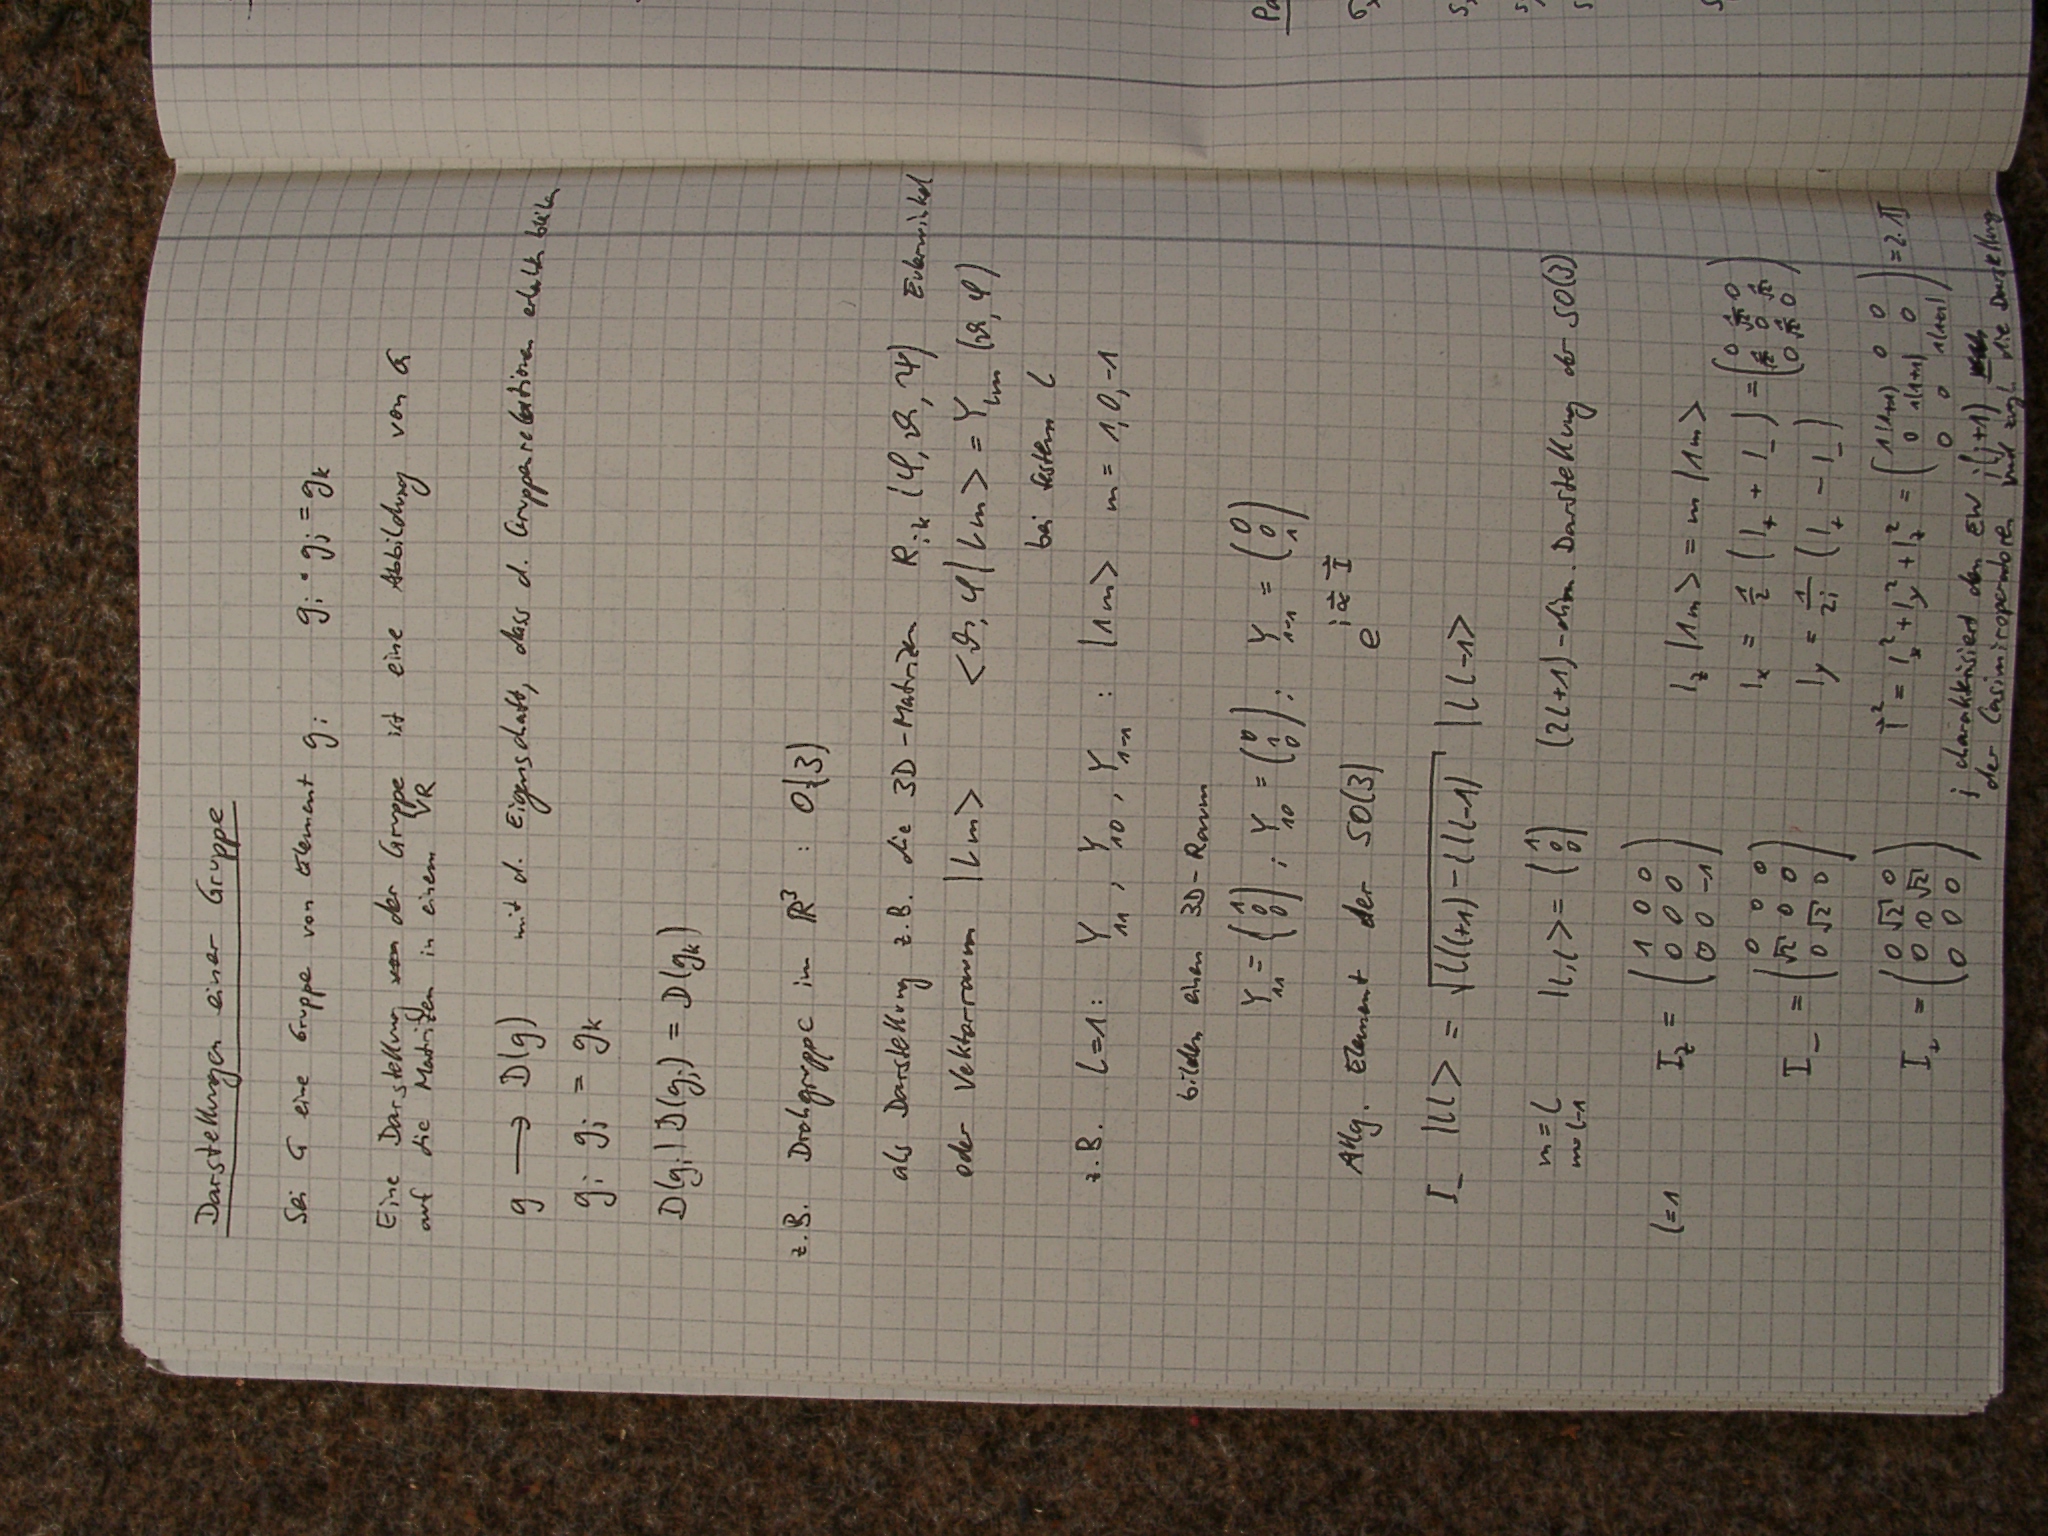 Darstellungen einer Gruppe
Sei G eine Gruppe von Element gi gi · gj = gk
Eine Darstellung von der Gruppe ist eine Abbildung von G
auf die Matrizen in einem VR
g → D(g) mit d. Eigenschaft, dass d. Gruppenrelationen erhalten bleiben
gi gj = gk
D(gi) D(gj) = D(gk)
z.B. Drehgruppe im ℝ³ : O(3)
als Darstellung z.B. die 3D-Matrizen Rik (φ, ϑ, ψ) Eulerwinkel
oder Vektorraum |lm> <ϑ, φ|lm> = Ylm (ϑ, φ)
bei festem l
z.B. l=1: Y11, Y10, Y1-1 : |1m> m = 1, 0, -1
bilden einen 3D-Raum
Y11 = (1 0 0) ; Y10 = (0 1 0) ; Y1-1 = (0 0 1)
Allg. Element der SO(3) e^{i α⃗ I⃗}
I- |ll> = √(l(l+1) - l(l-1)) |l l-1>
m=l |l,l> = (1 0 0) (2l+1)-dim. Darstellung der SO(3)
m=l-1
l=1 Iz = (1 0 0 / 0 0 0 / 0 0 -1) Iz |1m> = m |1m>
Ix = 1/2 (I+ + I-) = (0 1/√2 0 / 1/√2 0 1/√2 / 0 1/√2 0)
I- = (0 0 0 / √2 0 0 / 0 √2 0) Iy = 1/2i (I+ - I-)
I+ = (0 √2 0 / 0 0 √2 / 0 0 0) I⃗² = Ix² + Iy² + Iz² = (1(1+1) 0 0 / 0 1(1+1) 0 / 0 0 1(1+1)) = 2·1
j charakterisiert den EW j(j+1)
der Casimiroperatoren und zugl. die Darstellung